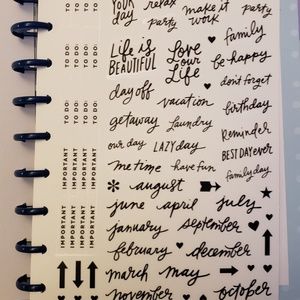 YOUR relax make it party
day party work
Life is Love family
BEAUTIFUL our be happy
Life don't forget
day off vacation birthday
getaway laundry Reminder
our day LAZY day BEST DAY ever
me time have fun family day
august
june april july
january september
february december
march may
november october
TO DO: TO DO: TO DO: TO DO:
TO DO: TO DO: TO DO: TO DO:
TO DO: TO DO: TO DO: TO DO:
IMPORTANT IMPORTANT IMPORTANT IMPORTANT
IMPORTANT IMPORTANT IMPORTANT IMPORTANT